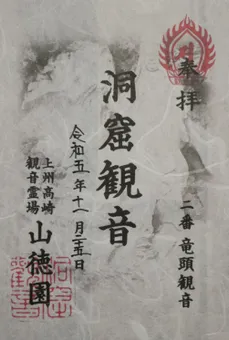 奉拝
二番 竜頭観音
洞窟観音
令和五年十一月二五日
上州高崎
観音霊場
山徳園